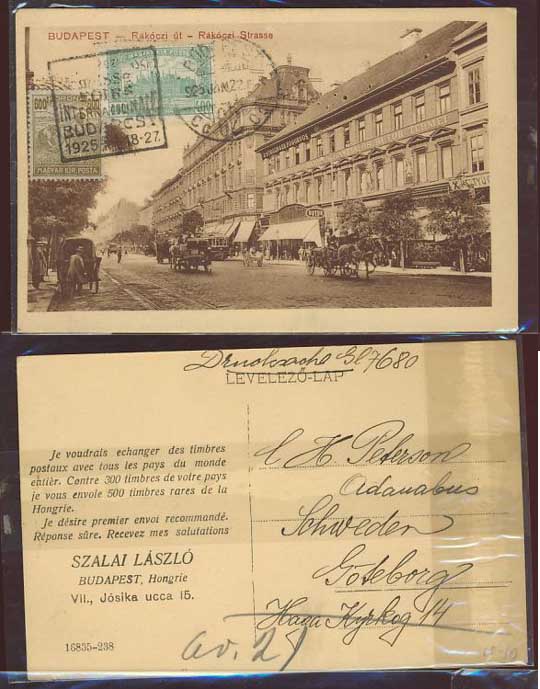 BUDAPEST — Rákóczi út - Rákóczi Strasse
FOIRE
INTERNATIONALE
BUDAPEST
1925 18-27.
600
MAGYAR KIR. POSTA
BUTOR
Drucksache Gl 7680
LEVELEZŐ-LAP
Je voudrais echanger des timbres
postaux avec tous les pays du monde
entièr. Contre 300 timbres de votre pays
je vous envoie 500 timbres rares de la
Hongrie.
Je désire premier envoi recommandé.
Réponse sûre. Recevez mes salutations
SZALAI LÁSZLÓ
BUDAPEST, Hongrie
VII., Jósika ucca 15.
16835–238
C H Peterson
Schweden
Göteborg
Haga Kyrkog 14